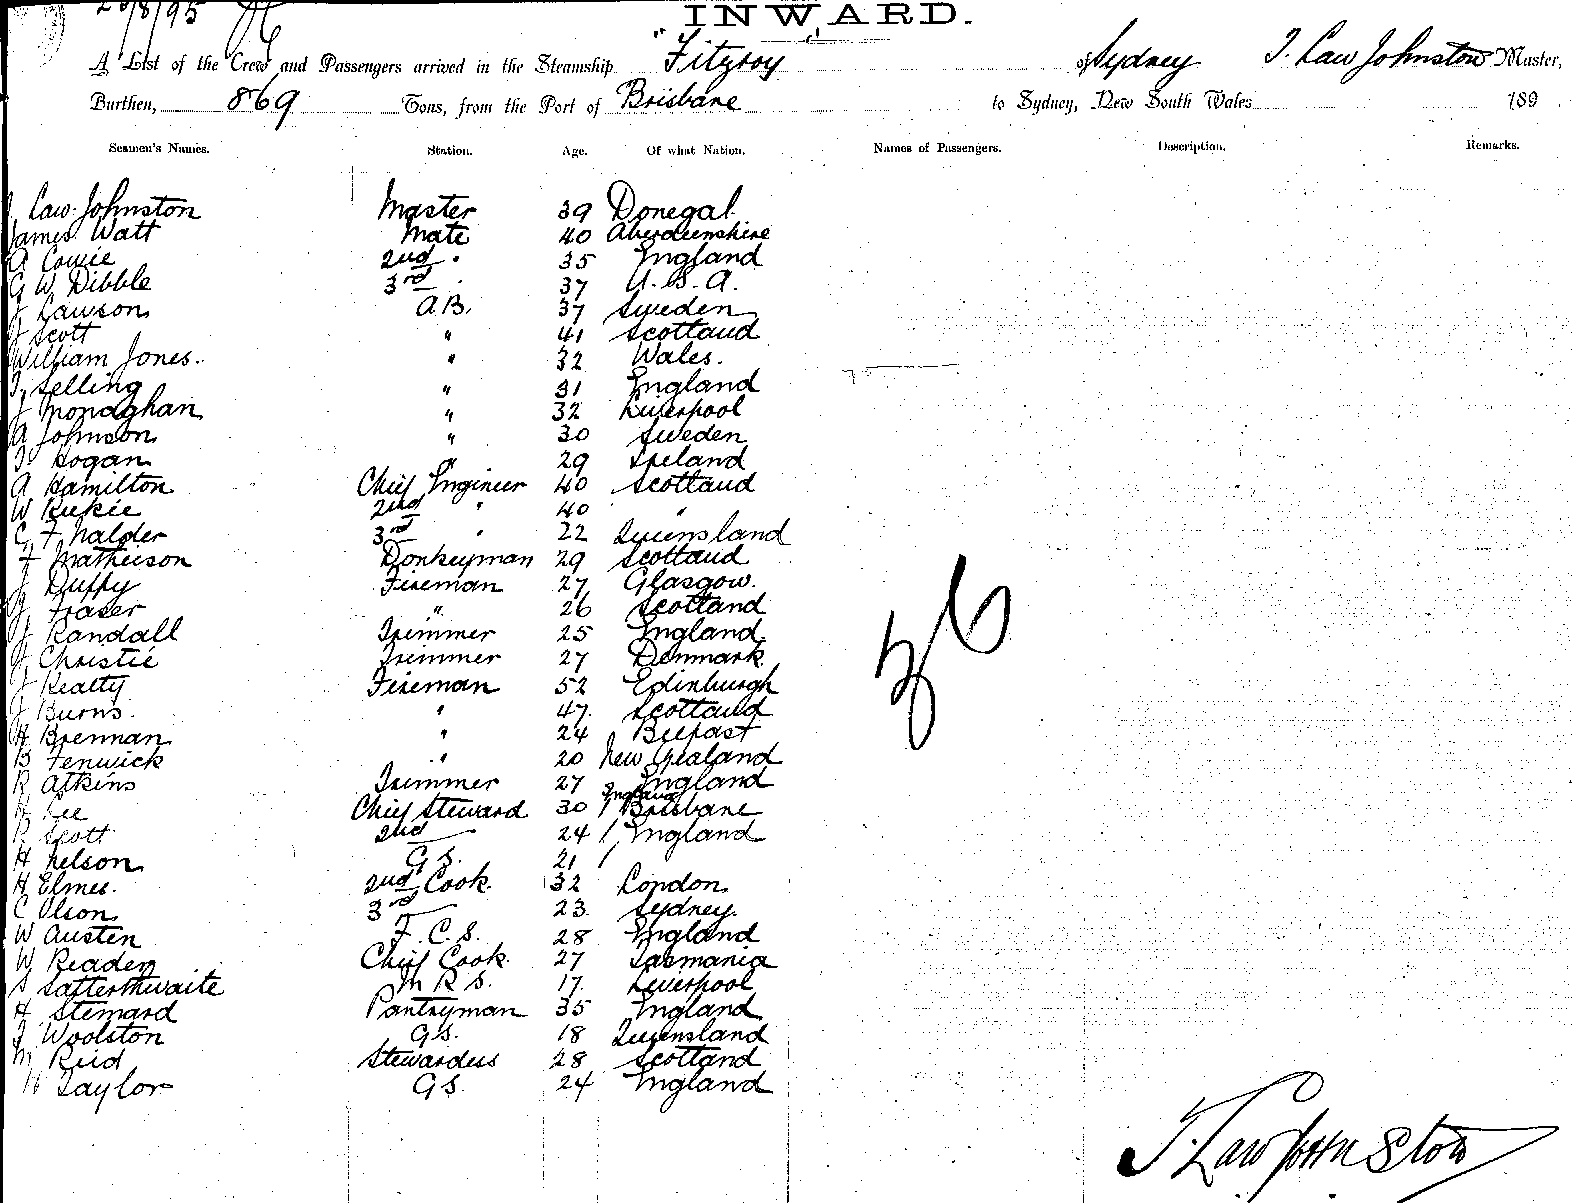 /8/95
INWARD.
A List of the Crew and Passengers arrived in the Steamship "Fitzroy of Sydney T. Law Johnston Master,
Burthen, 869 Tons, from the Port of Brisbane to Sydney, New South Wales 189
Seamen's Names. Station. Age. Of what Nation. Names of Passengers. Description. Remarks.
Law Johnston Master 39 Donegal
James Watt Mate 40 Aberdeenshire
A Cowie 2nd " 35 England
G W Dibble 3rd " 37 U.S.A.
J Lawson A.B. 37 Sweden
J Scott " 41 Scotland
William Jones. " 32 Wales.
Selling " 31 England
J Monaghan " 32 Liverpool
A Johnson " 30 Sweden
Hogan " 29 Ireland
A Hamilton Chief Engineer 40 Scotland
W Rukie 2nd " 40 "
C F Nalder 3rd " 22 Queensland
F Mathieson Donkeyman 29 Scotland
J Duffy Fireman 27 Glasgow.
Fraser " 26 Scotland
J Randall Trimmer 25 England
J Christie Trimmer 27 Denmark
J Realty Fireman 52 Edinburgh
J Burns. " 47 Scotland
H Brennan " 24 Belfast
B Fenwick " 20 New Zealand
R Atkins Trimmer 27 England
H Lee Chief Steward 30 England Brisbane
R Scott 2nd 24 England
H Nelson G S. 21
H Elmes. 2nd Cook. 32 London
C Olson 3rd 23 Sydney.
W Austen F. C. S. 28 England
W Readen Chief Cook. 27 Tasmania
S Satterthwaite M R S. 17. Liverpool
H Stemard Pantryman 35 England
J Woolston G.S. 18 Queensland
M Reid Stewardess 28 Scotland
Taylor G S. 24 England
36
T. Law Johnston